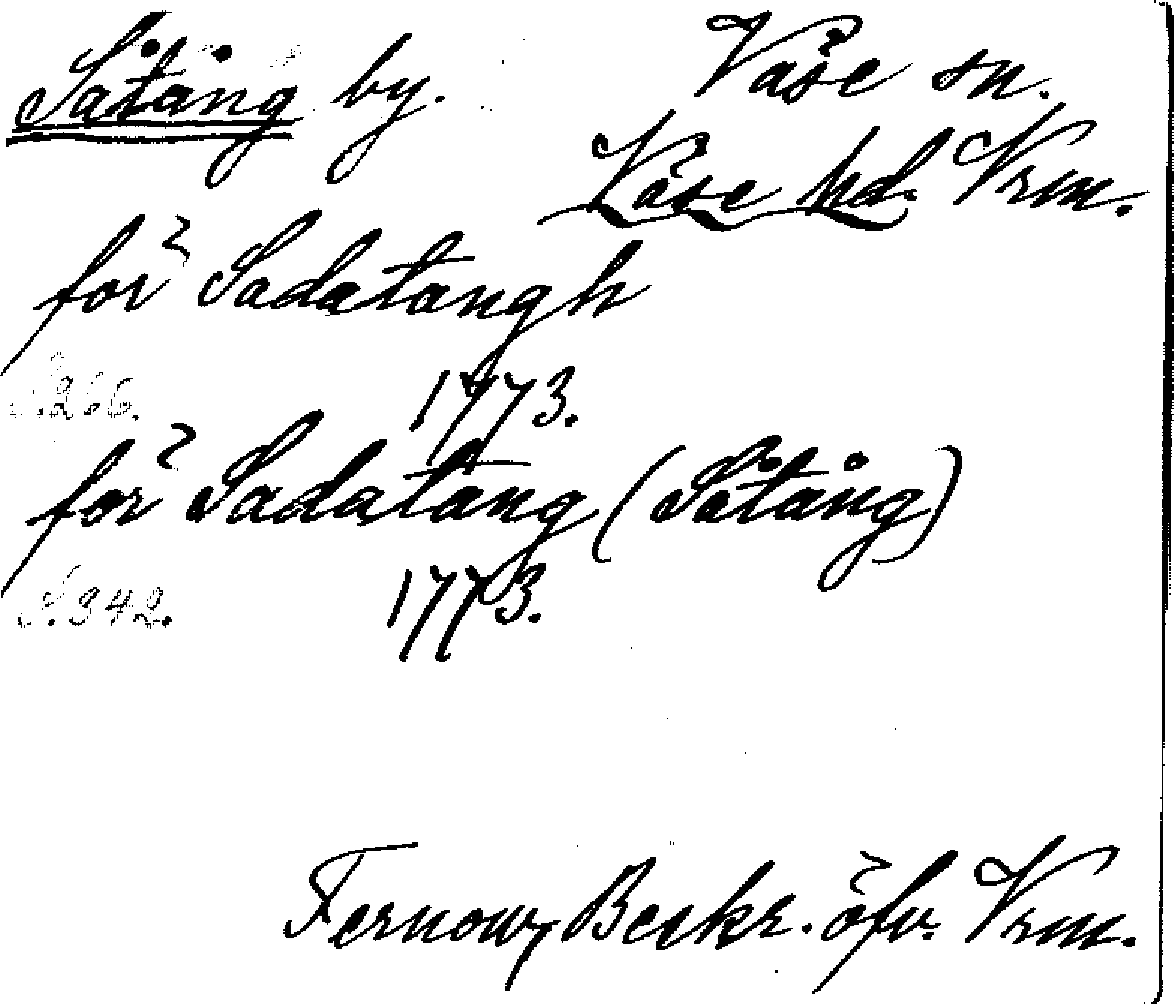 Såtäng by. Väse sn.
Väse hd. Vrm.
för Sadatangh
S. 266. 1773.
för Sadatäng (Såtång)
S. 342. 1773.
Fernow, Beskr. öfv. Vrm.